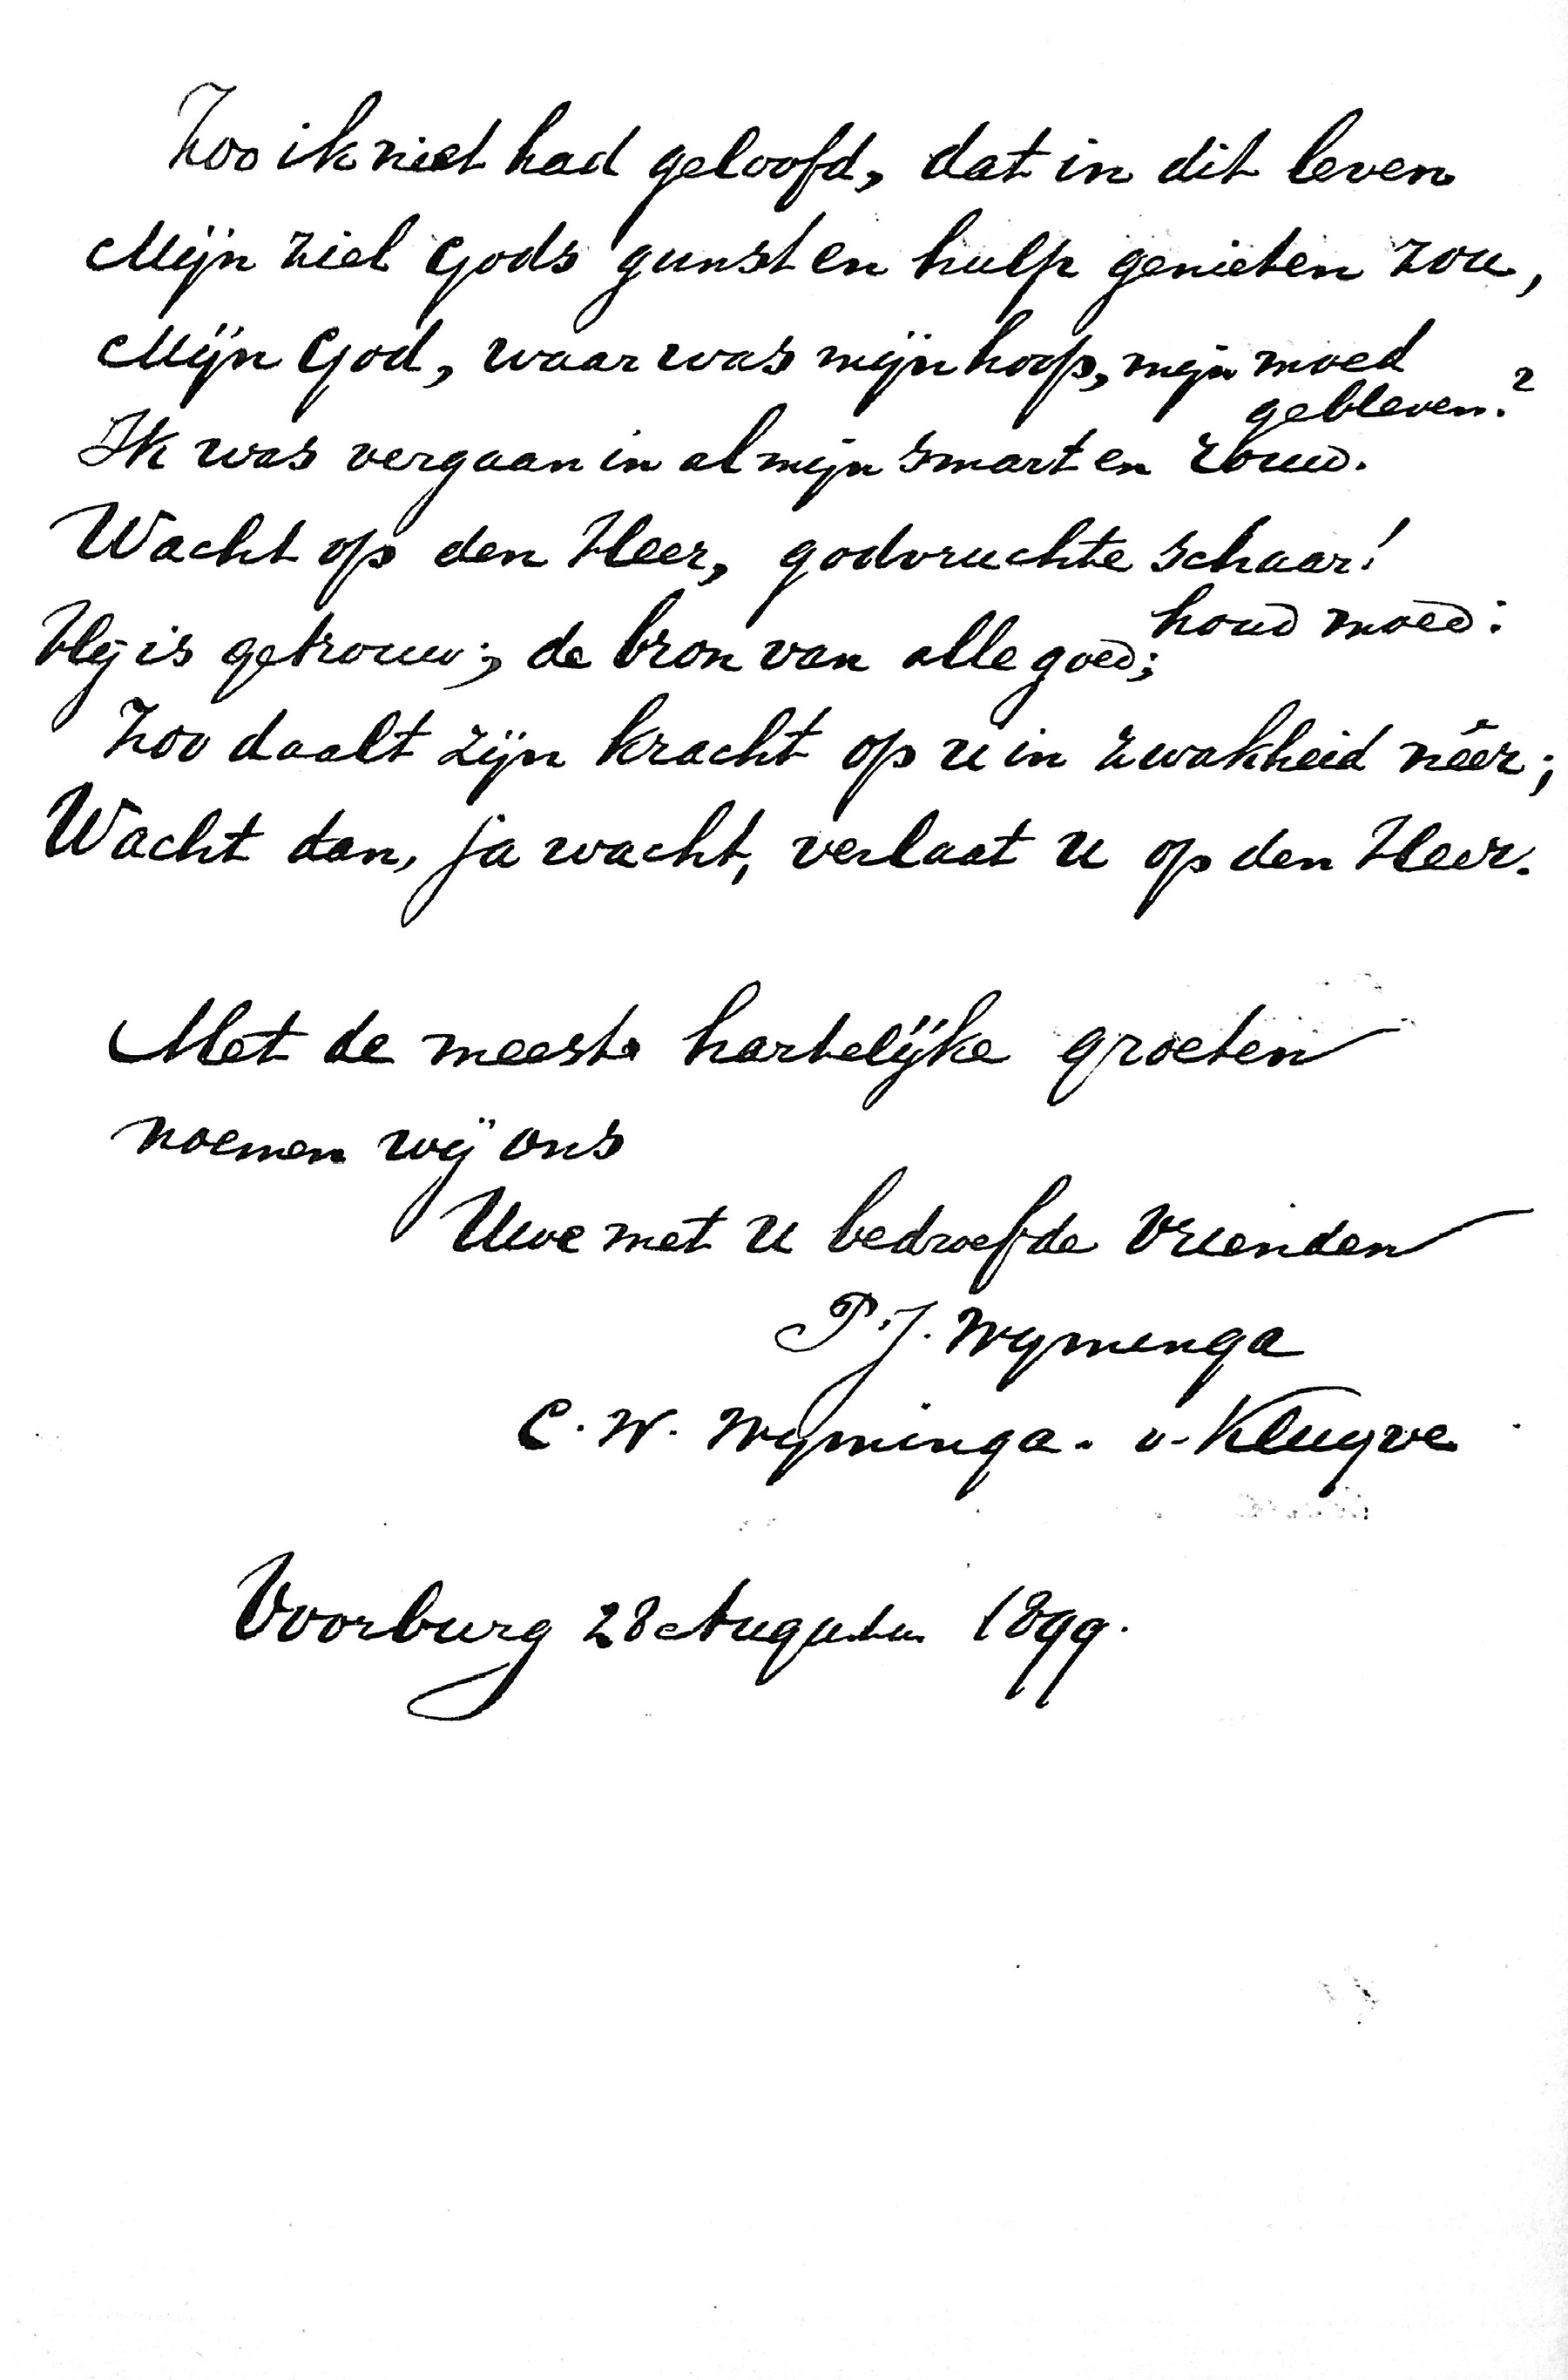 Zoo ik niet had geloofd, dat in dit leven
Mijn ziel Gods gunst en hulp genieten zou,
Mijn God, waar was mijn hoop, mijn moed
gebleven?
Ik was vergaan in al mijn smart en rouw.
Wacht op den Heer, godvruchte schaar!
houd moed:
Hij is getrouw; de bron van alle goed;
Zoo daalt zijn kracht op u in zwakheid nêer;
Wacht dan, ja wacht, verlaat u op den Heer.
Met de meeste hartelijke groeten
noemen wij ons
Uwe met u bedroefde Vrienden
P. J. Wyminga
C. W. Wyminga. v. Kluyve
Voorburg 28 Augustus 1899.